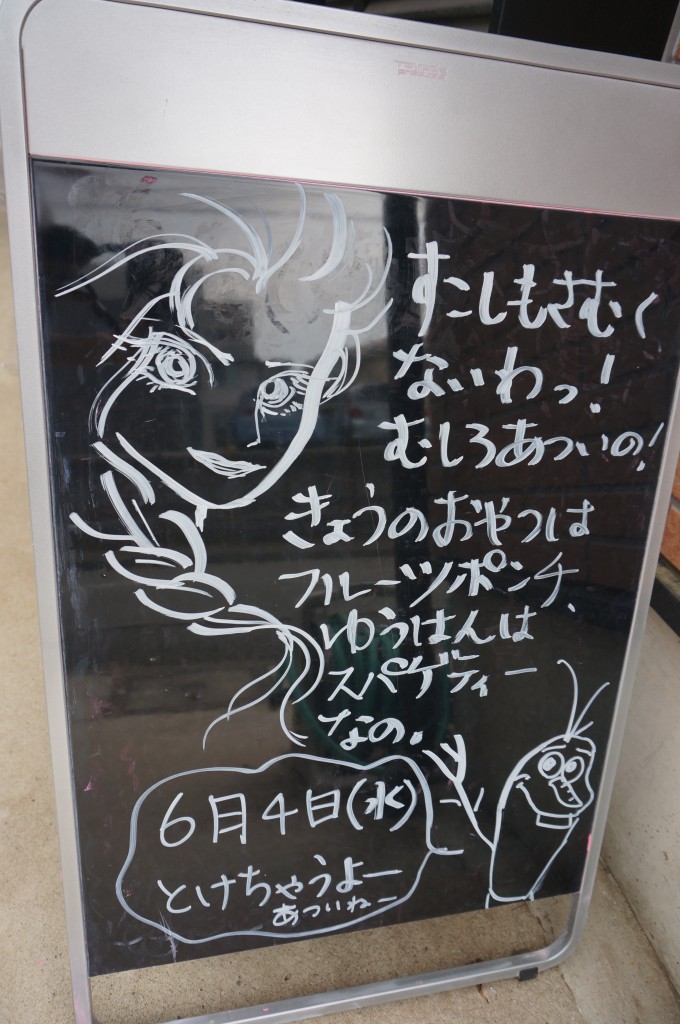 すこしもさむく
ないわっ!
むしろあついの!
きょうのおやつは
フルーツポンチ、
ゆうはんは
スパゲティー
なの。
6月4日(水)
とけちゃうよー
あついねー